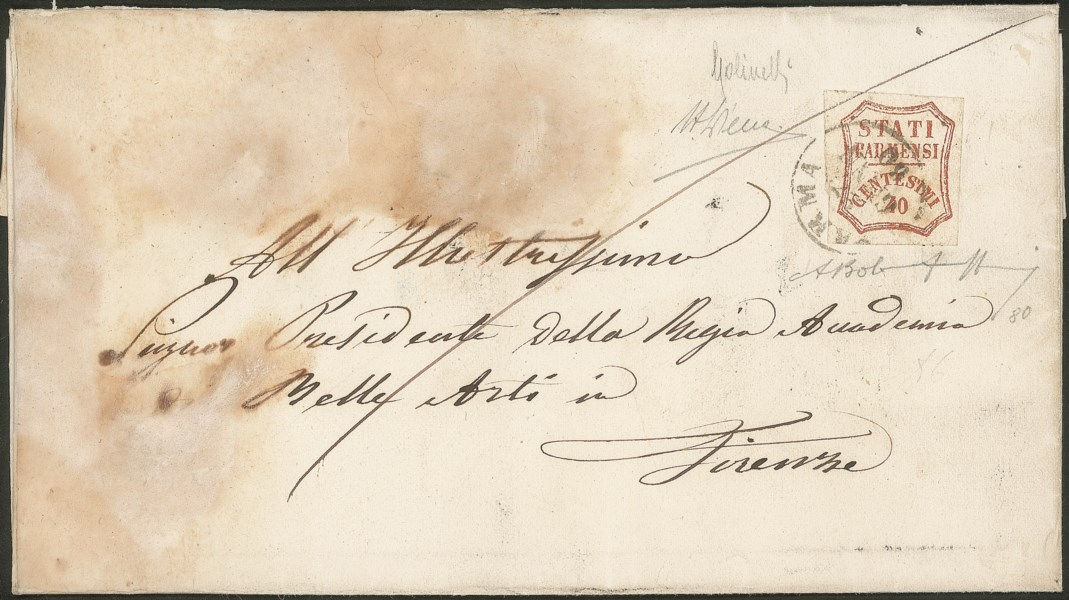 Molinelli
ADiena
STATI
PARMENSI
CENTESIMI
40
PARMA
ABolaffi
All Illustrissimo
Signor Presidente Della Regia Accademia
80
Belle Arti in
Firenze